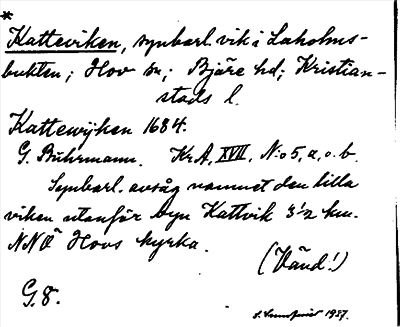 *
Katteviken, synbarl. vik i Laholms-
bukten; Hov sn; Bjäre hd; Kristian-
stads l.
Kattewÿken 1684.
G. Buhrmann. KrA, XVII, N:o 5, a, o. b.
Synbarl. avsåg namnet den lilla
viken utanför byn Kattvik 3 1/2 km.
NNÖ Hovs kyrka.
(Vänd!)
G. 8.
1927.